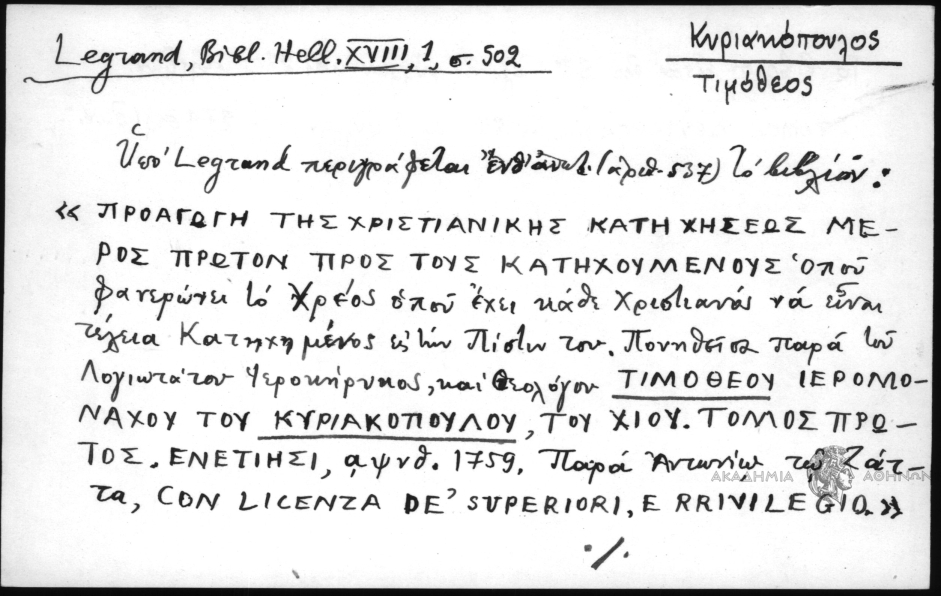 Legrand, Bibl. Hell. XVIII, 1, σ. 502
Κυριακόπουλος
Τιμόθεος
Ὑπό Legrand περιγράφεται ἐνθ' ἀνωτ. (ἀριθ. 537) τό βιβλίον:
« ΠΡΟΑΓΩΓΗ ΤΗΣ ΧΡΙΣΤΙΑΝΙΚΗΣ ΚΑΤΗΧΗΣΕΩΣ ΜΕ-
ΡΟΣ ΠΡΩΤΟΝ ΠΡΟΣ ΤΟΥΣ ΚΑΤΗΧΟΥΜΕΝΟΥΣ ὁποῦ
φανερώνει τό Χρέος ὁποῦ ἔχει κάθε Χριστιανός νά εἶναι
τέλεια Κατηχημένος εἰς τήν Πίστιν του. Πονηθεῖσα παρά τοῦ
Λογιωτάτου Ἱεροκήρυκος, καί Θεολόγου ΤΙΜΟΘΕΟΥ ΙΕΡΟΜΟ-
ΝΑΧΟΥ ΤΟΥ ΚΥΡΙΑΚΟΠΟΥΛΟΥ, ΤΟΥ ΧΙΟΥ. ΤΟΜΟΣ ΠΡΩ-
ΤΟΣ. ΕΝΕΤΙΗΣΙ, αψνθ. 1759. Παρά Ἀντωνίῳ τῷ Ζάτ-
τα, CON LICENZA DE' SUPERIORI, E RRIVILEGIO. »
ΑΚΑΔΗΜΙΑ ΑΘΗΝΩΝ
./.